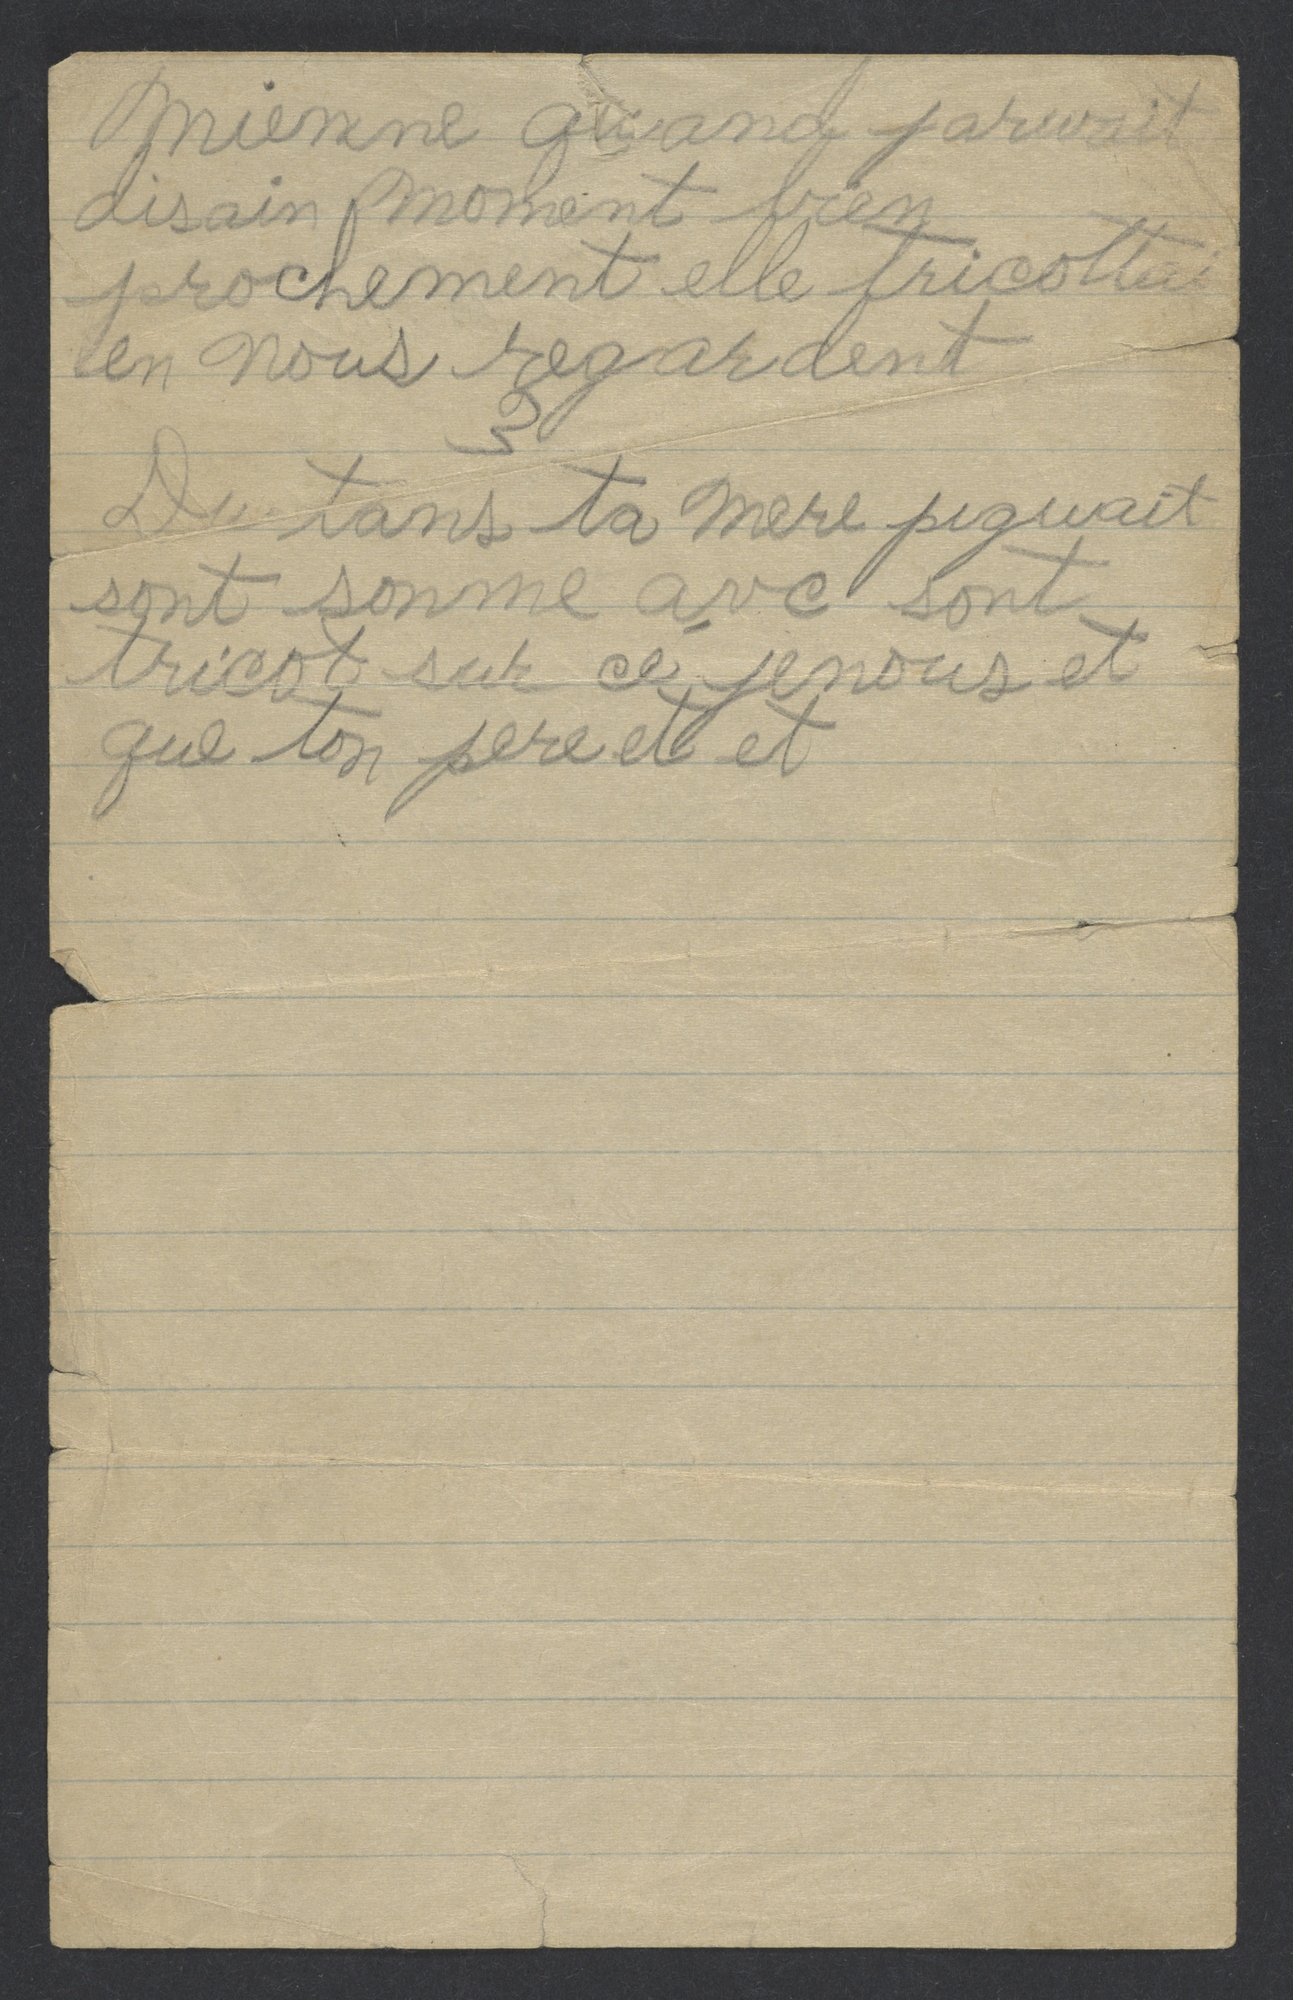 Mienne quand j'arwait
disain moment bien
prochement elle tricottai
en nous regardent
3
Du tans ta mere pigwait
sont somme avc sont
tricot sur ce jenous et
que ton pere et et